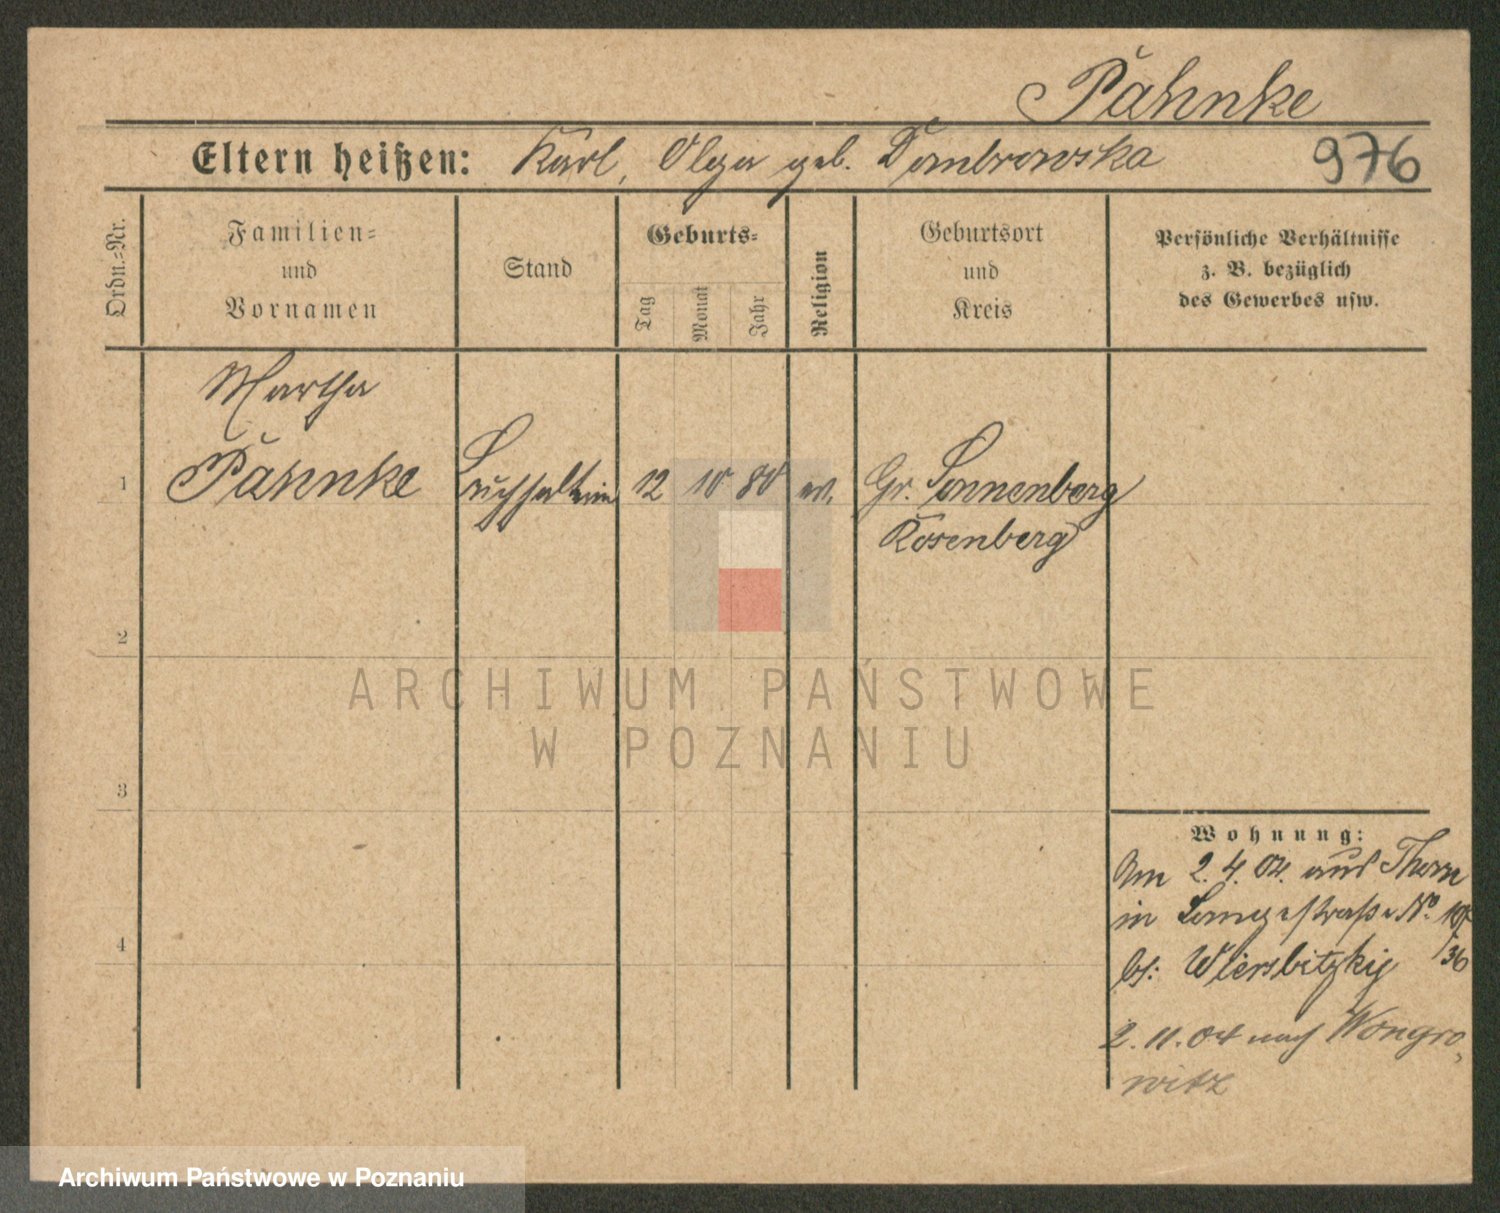 Pahnke
Eltern heißen: Karl, Olga geb. Dombrowska 976
Ordn.-Nr.
Familien-
und
Vornamen
Stand
Geburts-
Tag
Monat
Jahr
Religion
Geburtsort
und
Kreis
Persönliche Verhältnisse
z. B. bezüglich
des Gewerbes usw.
Martha
1 Pahnke Buchhalterin 12 10 80 ev. Gr. Sonnenberg
Rosenberg
2
3
4
ARCHIWUM PAŃSTWOWE
W POZNANIU
Wohnung:
Am 2. 4. 04. aus Thorn
in Langestraße No.
36
bei Wiersbitzky
2. 11. 04 nach Wongro-
witz
Archiwum Państwowe w Poznaniu